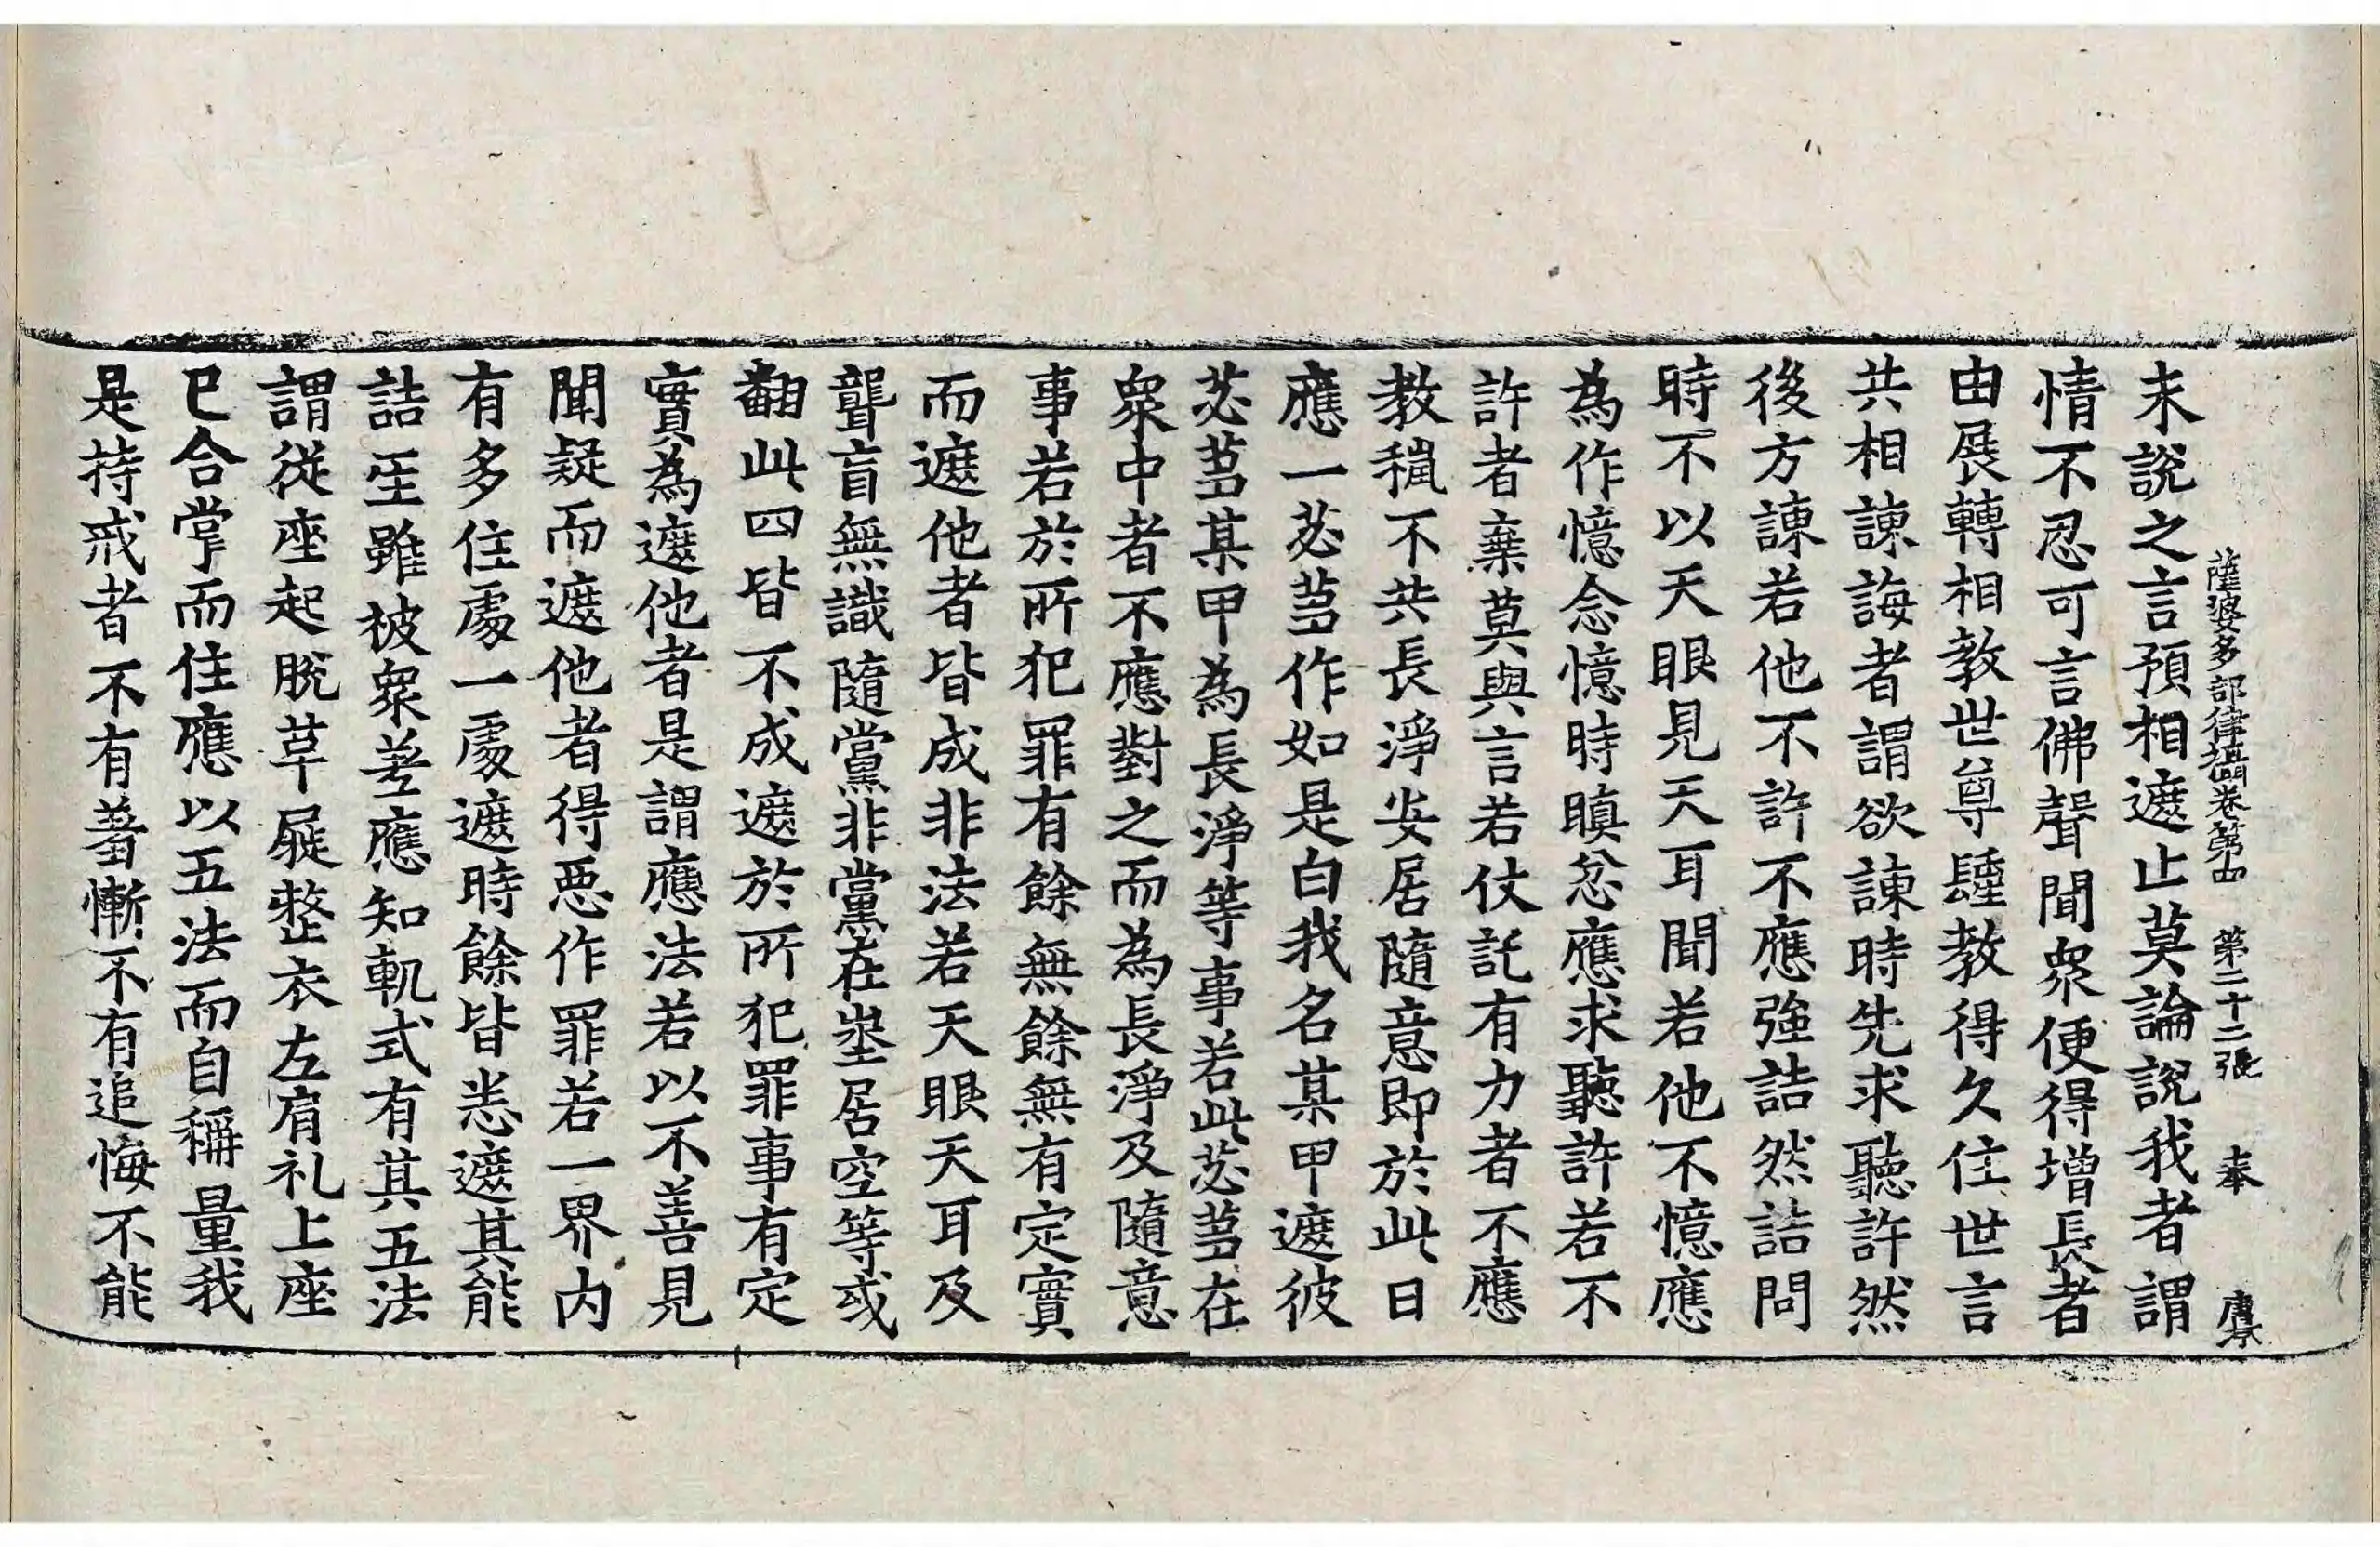 薩婆多部律攝卷第四 第二十二張 奉 
未說之言預相遮止莫論說我者謂
情不忍可言佛聲聞衆便得增長者
由展轉相教世尊𨤲教得久住世言
共相諫誨者謂欲諫時先求聽許然
後方諫若他不許不應強詰然詰問
時不以天眼見天耳聞若他不憶應
為作憶念憶時瞋忿應求聽許若不
許者棄莫與言若仗託有力者不應
教稱不共長淨安居隨意即於此日
應一苾芻作如是白我名某甲遮彼
苾芻某甲為長淨等事若此苾芻在
衆中者不應對之而為長淨及隨意
事若於所犯罪有餘無餘無有定實
而遮他者皆成非法若天眼天耳及
聾盲無識隨黨非黨在㘴居空等或
翻此四皆不成遮於所犯罪事有定
實為遮他者是謂應法若以不善見
聞疑而遮他者得惡作罪若一界內
有多住處一處遮時餘皆恙遮其能
詰𤯔雖被衆差應知軌式有其五法
謂從座起脫草屣整衣左肩礼上座
已合掌而住應以五法而自稱量我
是持戒者不有羞慚不有追悔不能